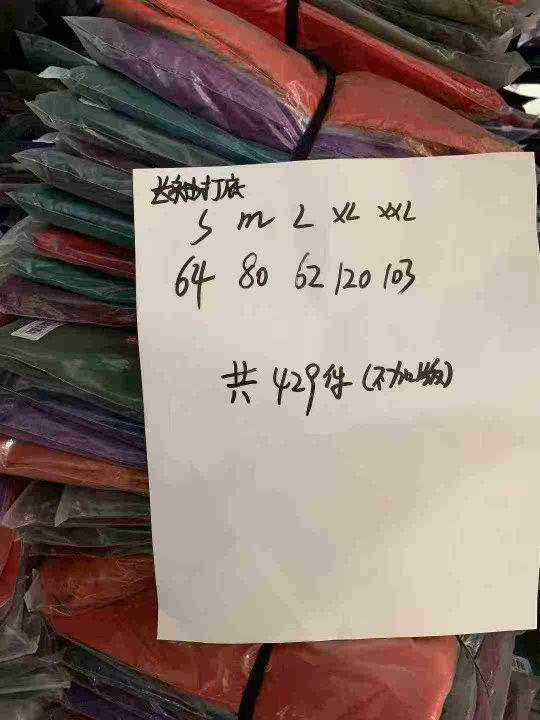 长袖打底
S m L XL XXL
64 80 62 120 103
共 429件 (不加绒)